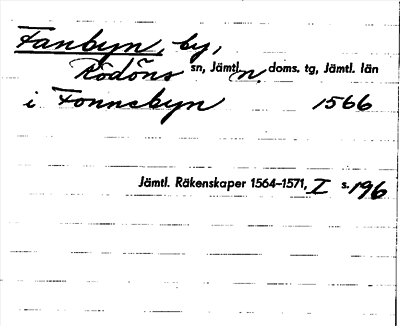 Fanbyn, by,
Rödöns sn, Jämtl. n. doms. tg, Jämtl. län
i Fonnebyn 1566
Jämtl. Räkenskaper 1564–1571, I s. 196